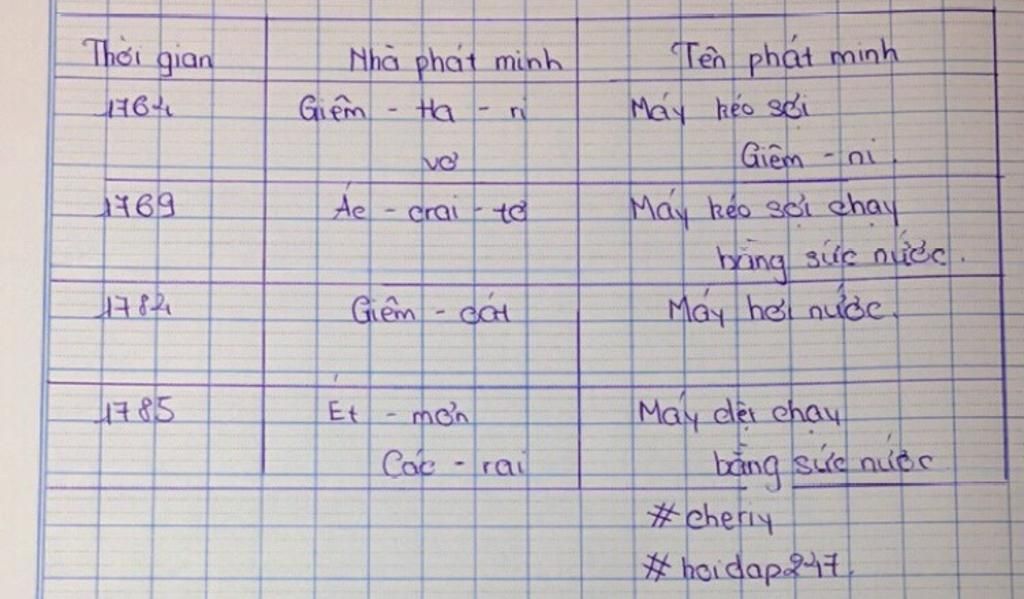 Thời gian Nhà phát minh Tên phát minh
1764 Giêm - Ha - ri Máy kéo sợi
vơ Giêm - ni.
1769 Ác - crai - tơ Máy kéo sợi chạy
bằng sức nước.
1784 Giêm - oát Máy hơi nước.
1785 Ét - mơn Máy dệt chạy
Các - rai bằng sức nước
#cheriy
#hoidap247.